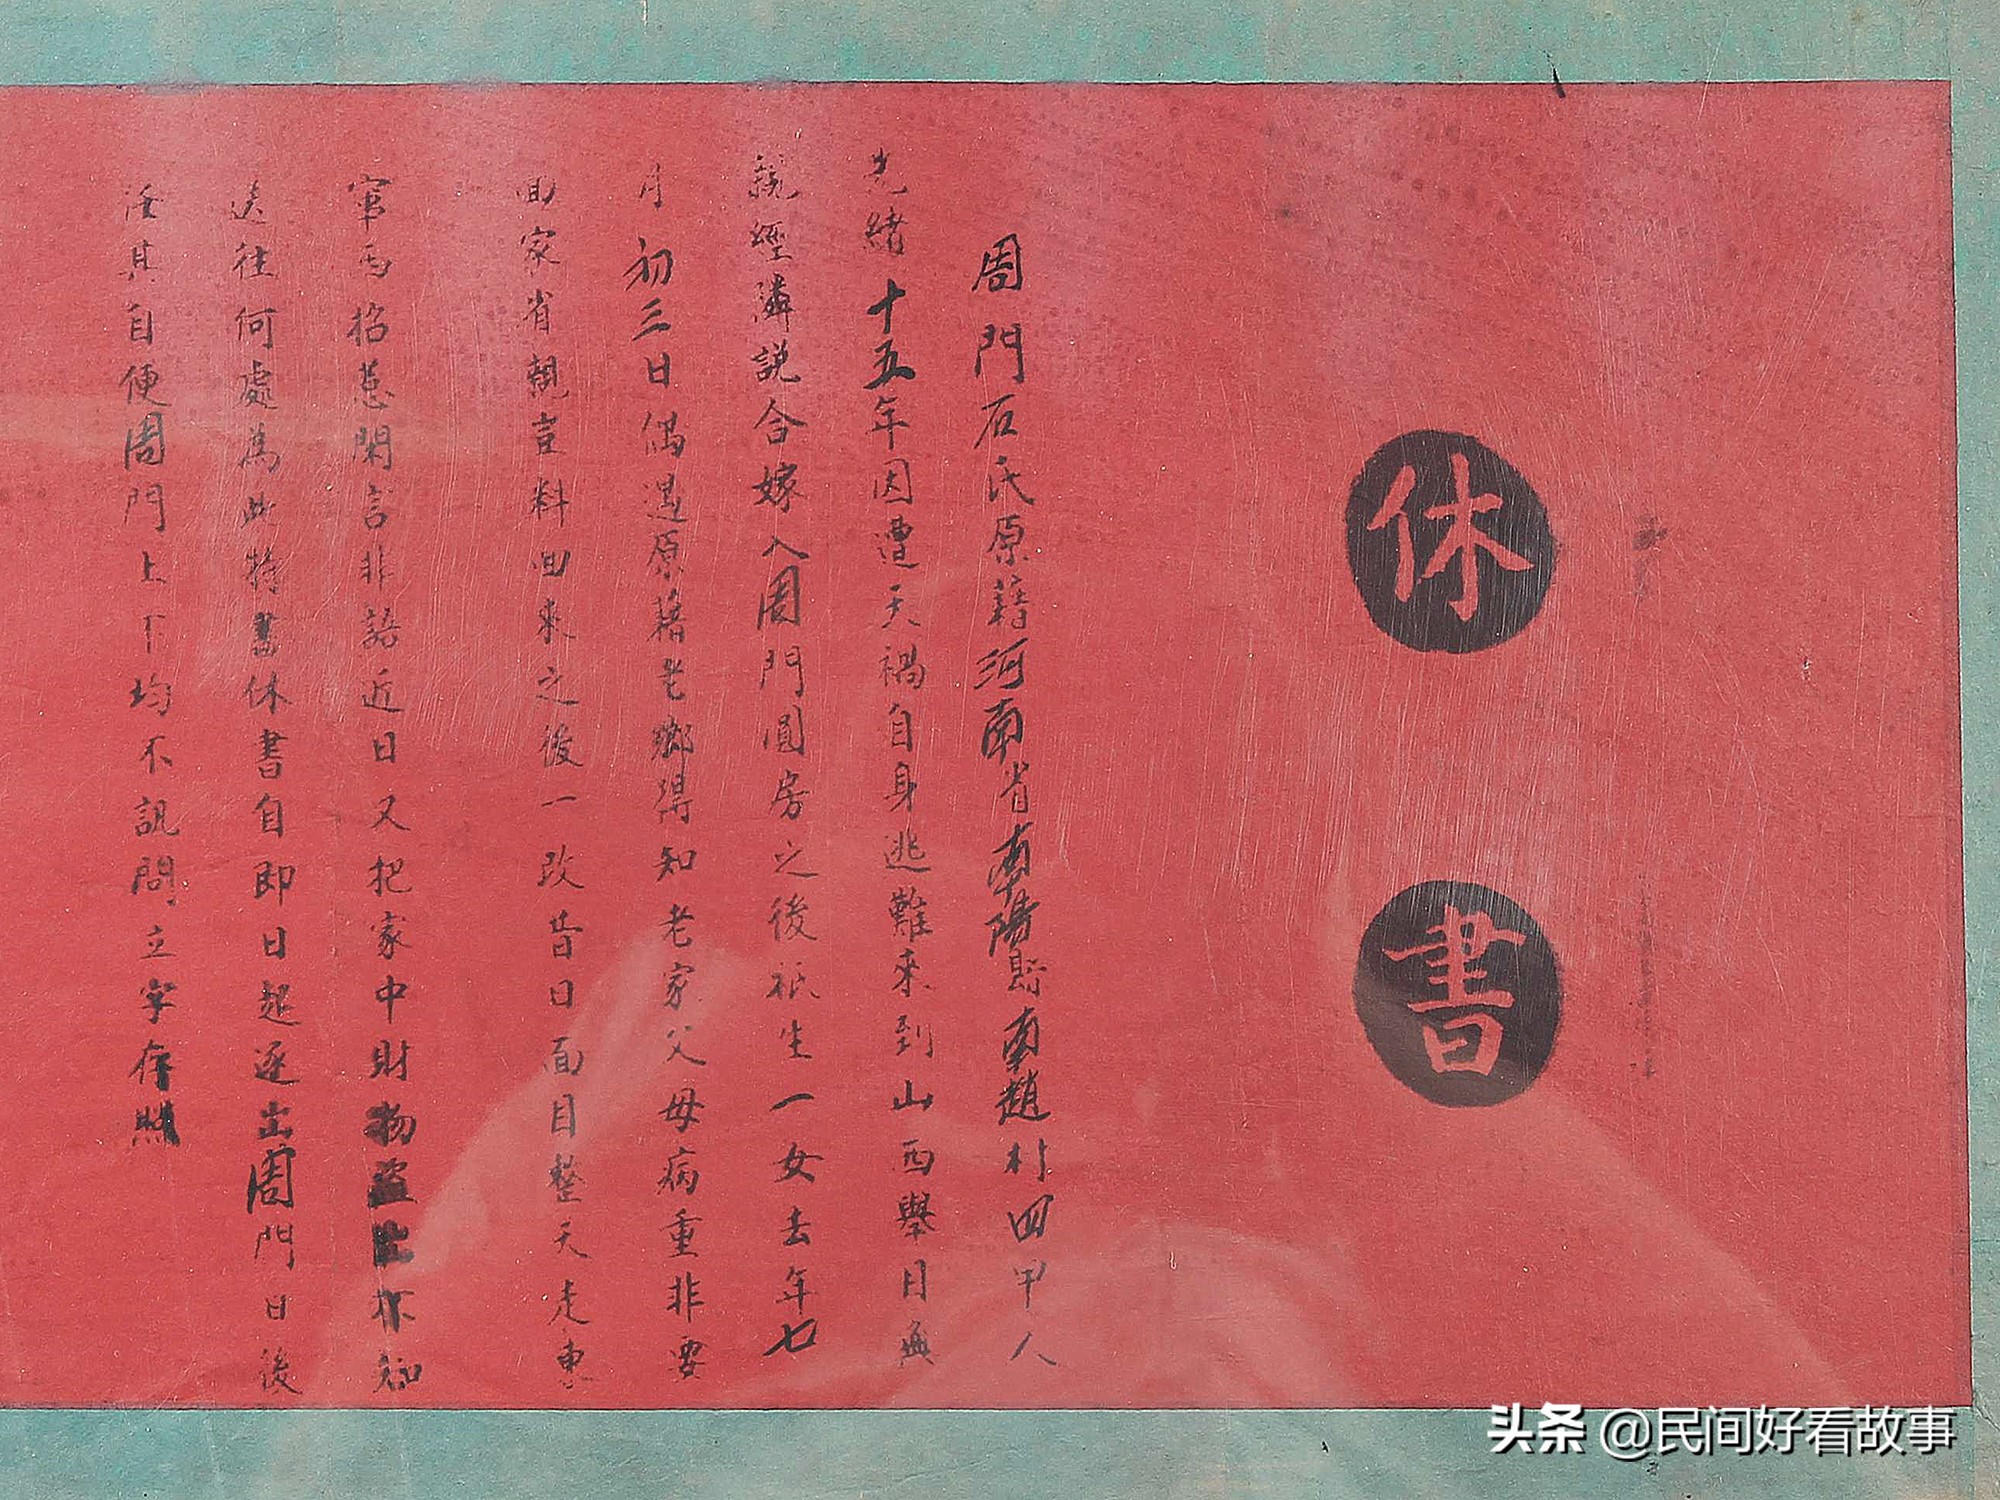 休書
周門石氏原藉河南省南陽縣南趙村四甲人
光緒十五年因遭天禍自身逃難來到山西舉目無
親經隣説合嫁入周門圓房之後祇生一女去年七
月初三日偶遇原藉老鄉得知老家父母病重非要
回家省親豈料回來之後一改昔日面目整天走東
家 招惹閑言非語近日又把家中財物盜出不知
送往何處為此特書休書自即日起逐出周門日後
任其自便周門上下均不訊問立字存照
头条 @民间好看故事